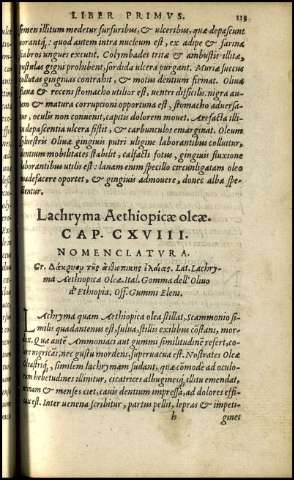 LIBER PRIMVS. 113
semen illitum medetur furfuribus, & ulceribus, quæ depascunt
quod autem intra nucleum est, ex adipe & farina
scabros ungues exuit. Colymbades tritæ & ambustis illitæ,
pustulas gigni prohibent, sordida ulcera purgant. Muriæ succus
gingiuas contrahit, & motus dentium firmat. Oliua
& recens stomacho utilior est, uentri difficilis. nigra au-
& matura corruptioni opportuna est, stomacho aduersa-
oculis non conuenit, capitis dolorem mouet. Arefacta illi-
depascentia ulcera sistit, & carbunculos emarginat. Oleum
Oliuæ gingiuis putri uligine laborantibus colluitur,
dentium mobilitates stabilit, calfacti fotus, gingiuis fluxione
laborantibus utilis est: lanam enim specillo circunligatam oleo
madefacere oportet, & gingiuis admouere, donec albæ spe-
Lachryma Aethiopicæ oleæ.
CAP. CXVIII.
NOMENCLATVRA.
Gr. Δάκρυον τῆς αἰθιοπικῆς ἐλαίας. Lat. Lachry-
ma Aethiopicæ Oleæ. Ital. Gomma dell'Oliuo
d'Ethiopia. Off. Gummi Elemi.
Lachryma quam Aethiopica olea stillat, Scammonio si-
milis quadantenus est, fulua, stillis exilibus cōstans, mor-
Quæ autē Ammoniaci aut gummi similitudinē refert, co-
nigricat, nec gustu mordens, superuacua est. Nostrates Oleæ
similem lachrymam sudant, quæ cōmode ad oculo-
hebetudines illinitur, cicatrices albugines illitu emendat,
& menses ciet, cauis dentium impressa, ad dolores effi-
est. Inter uenena scribitur, partus pellit, lepras & impeti-
h gines